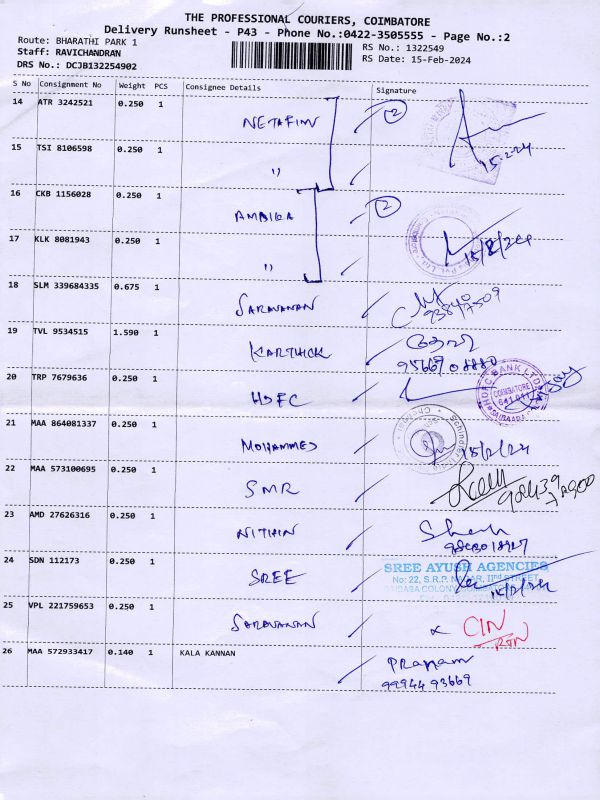 THE PROFESSIONAL COURIERS, COIMBATORE
Delivery Runsheet - P43 - Phone No.:0422-3505555 - Page No.:2
Route: BHARATHI PARK 1
RS No.: 1322549
Staff: RAVICHANDRAN
RS Date: 15-Feb-2024
DRS No.: DCJB132254902
S No Consignment No Weight PCS Consignee Details Signature
14 ATR 3242521 0.250 1 NETAFIM 2
15 TSI 8106598 0.250 1 " 15-2-24
16 CKB 1156028 0.250 1 AMBIKA 2
17 KLK 8081943 0.250 1 " 15/2/24
18 SLM 339684335 0.675 1 SARAVANAN
19 TVL 9534515 1.590 1 KARTHICK
95667 08880
20 TRP 7679636 0.250 1 HDFC
HDFC BANK LTD
COIMBATORE
641 011
21 MAA 864081337 0.250 1 MOHAMMED 15/2/24
Schindler
22 MAA 573100695 0.250 1 SMR
23 AMD 27626316 0.250 1 NITHIN
24 SDN 112173 0.250 1 SREE
SREE AYUSH AGENCIES
No: 22, S.R.P. NAGAR, IInd STREET
SAIBABA COLONY
25 VPL 221759653 0.250 1 SARAVANAN CIN
RTN
26 MAA 572933417 0.140 1 KALA KANNAN
99944 93669